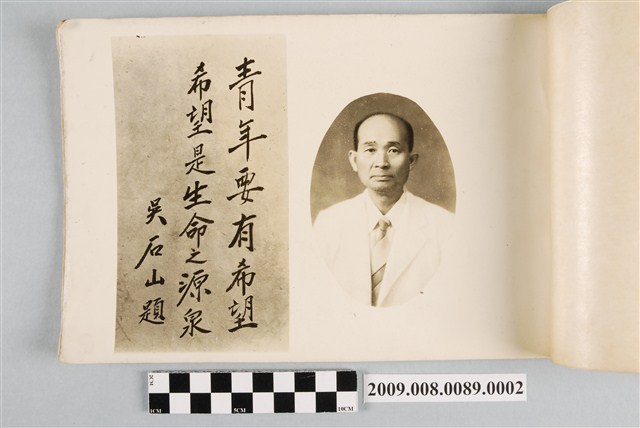 青年要有希望
希望是生命之源泉
吳石山題
1CM
5CM
10CM
2009.008.0089.0002